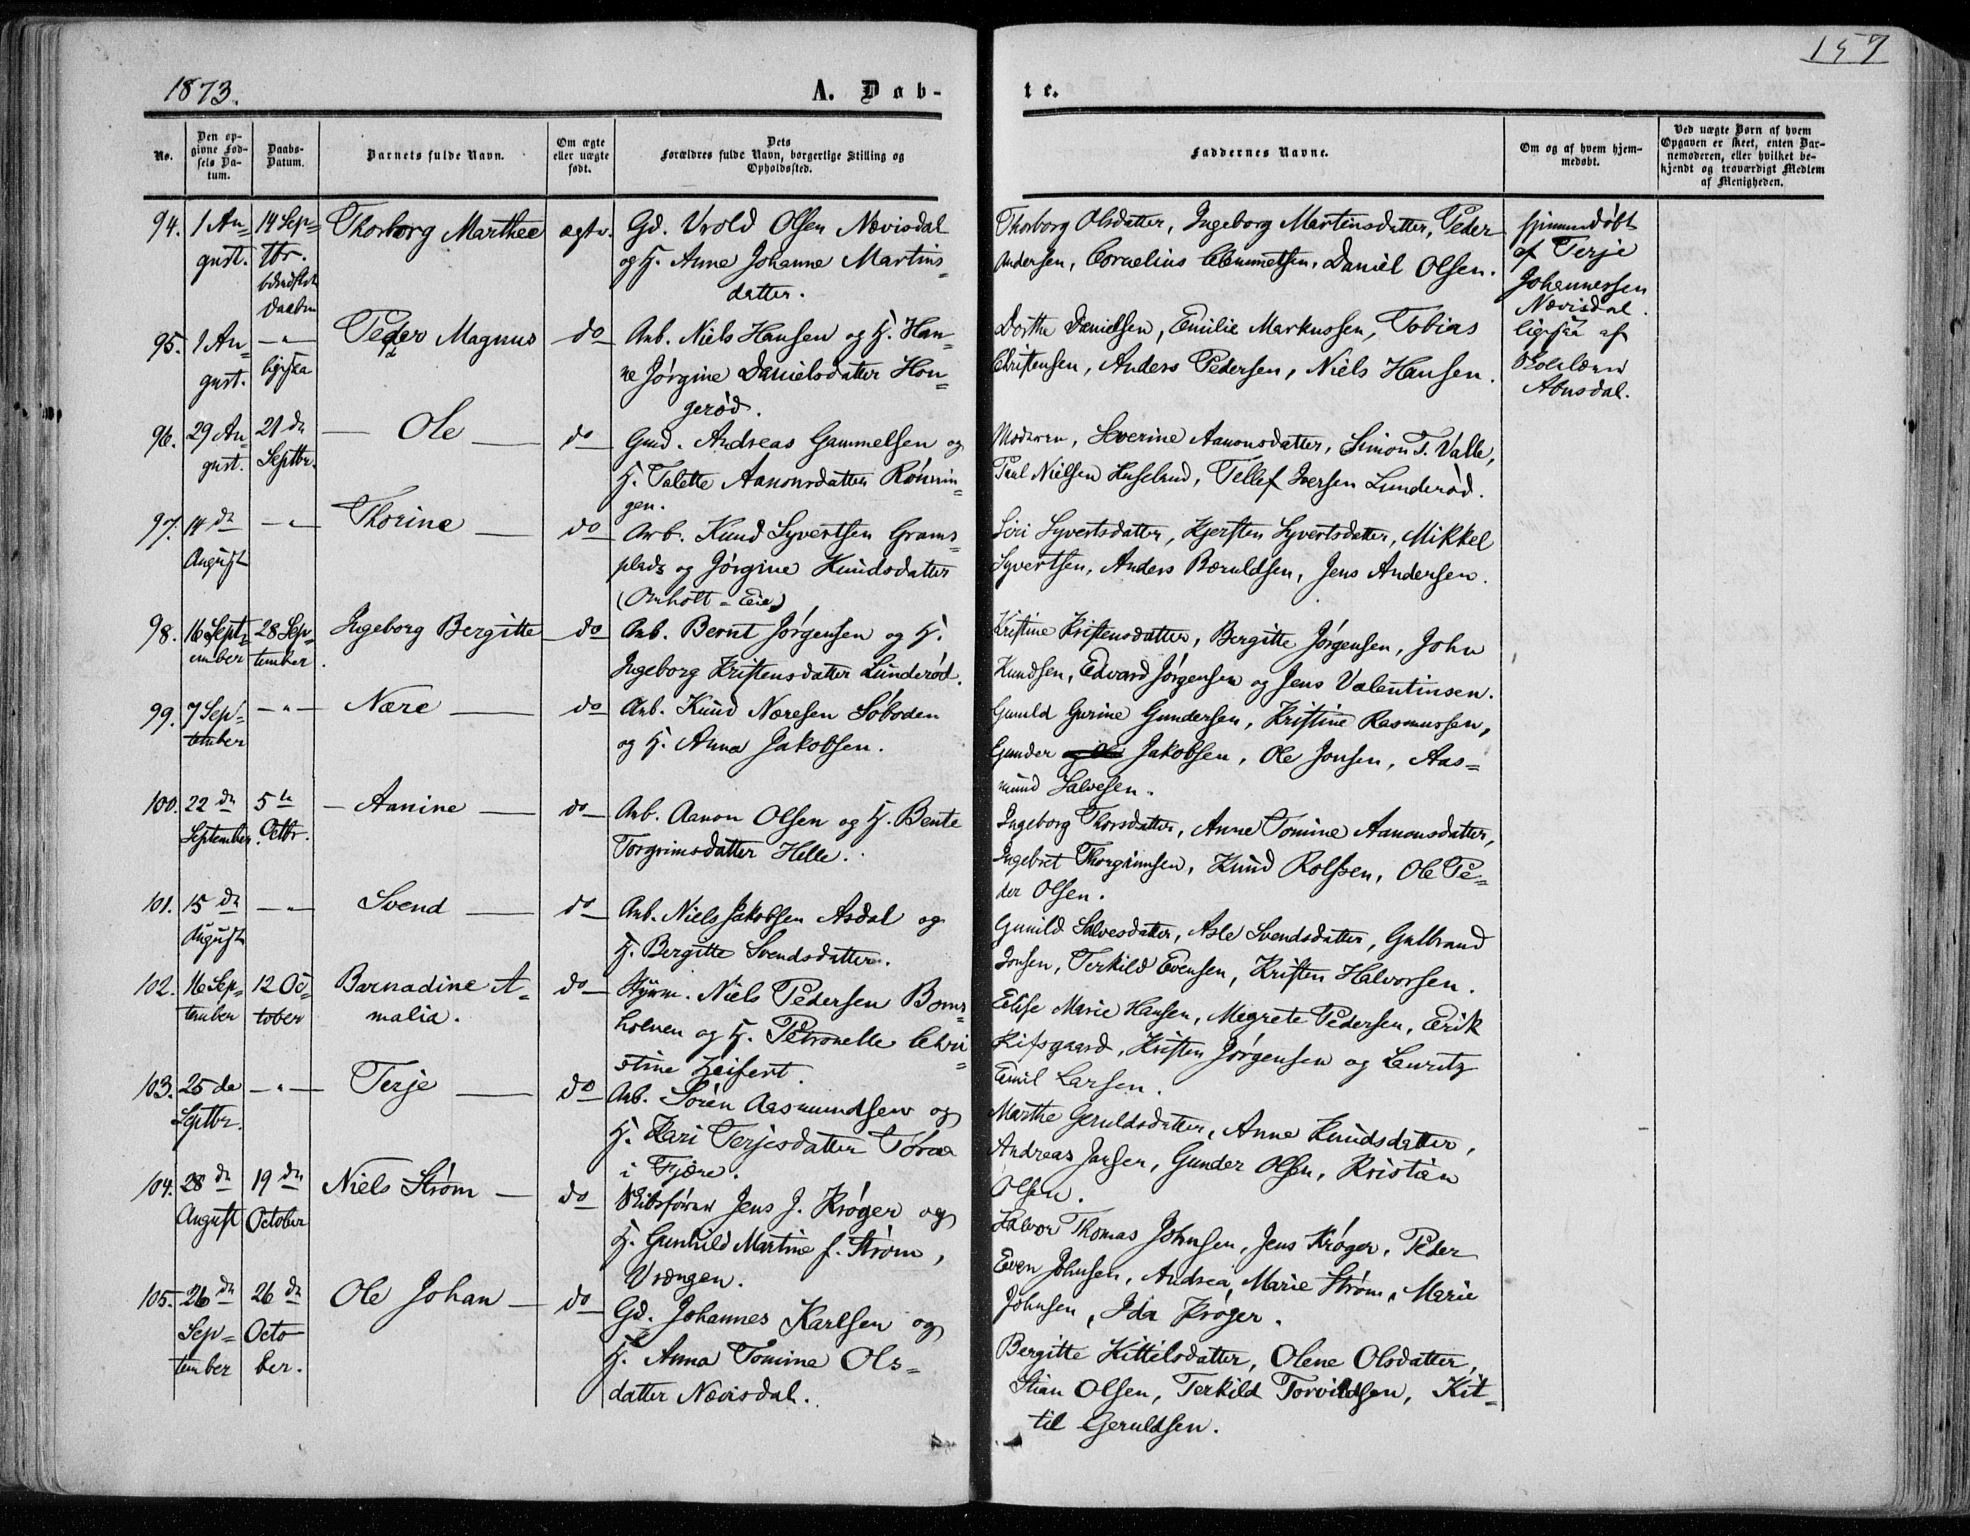 157
1873.
A. Døb-
te.
No.
Den op-
givne Fød-
sels Da-
tum.
Daabs-
Datum.
Barnets fulde Navn.
Om ægte
eller uægte
født.
Dets
Forældres fulde Navn, borgerlige Stilling og
Opholdssted.
Faddernes Navne.
Om og af hvem hjem-
medøbt.
Ved uægte Børn af hvem
Opgaven er skeet, enten Bar-
nemoderen, eller hvilket be-
kjendt og troværdigt Medlem
af Menigheden.
94.
1 Au=
gust.
14 Sep=
tbr.
bekræftet
Daaben
Thorborg Marthee
ægte.
Gd. Vrold Olsen Nævisdal
og H. Anne Johanne Martins
datter.
Thorborg Olsdatter, Ingeborg Martinsdatter, Peder
Andersen, Cornelius Clemmetsen, Daniel Olsen.
hjemmedøbt
af Terje
Johannessen
Nævisdal.
95.
1 Au=
gust.
— " —
ligesaa
Peder Magnus
do
Arb. Niels Hansen og H. Han=
ne Jørgine Danielsdatter Hon=
gerød.
Dorthe Danielsen, Emilie Markussen, Tobias
Christensen, Anders Pedersen, Niels Hansen.
ligesaa af
Skolelærer
Abusdal.
96.
29 Au
gust.
21 de
Septbr.
— Ole —
do
Gmd. Andreas Gammelsen og
H. Talette Aanonsdatter Rønnin=
gen.
Moderen, Severine Aanonsdatter, Simon T. Valle,
Paul Nielsen Huselund, Tellef Iversen Lunderød.
97.
14 de
August
— " —
Thorine —
do
Arb. Knud Syvertsen Grams=
plads og Jørgine Knudsdatter
(Omholt = Eie)
Siri Syvertsdatter, Kjersten Syvertsdatter, Mikkel
Syvertsen, Anders Bæruldsen, Jens Andersen.
98.
16 Sept=
ember
28 Sep=
tember.
Ingeborg Bergitte
do
Arb. Bernt Jørgensen og H.
Ingeborg Kristensdatter Lunderød.
Kristine Kristensdatter, Bergitte Jørgensen, John
Knudsen, Edvard Jørgensen og Jens Valentinsen.
99.
7 Sep=
tember
— " —
Nære —
do
Arb. Knud Næresen Søboden
og H. Anna Jakobsen.
Gunild Gurine Gundersen, Kristine Rasmussen,
Gunder Jakobsen, Ole Jonsen, Aas=
mund Salvesen.
100.
22 de
September.
5 te
Octbr.
— Aanine —
do
Arb. Aanon Olsen og H. Bente
Torgrimsdatter Helle.
Ingeborg Thorsdatter, Anne Tomine Aanonsdatter,
Ingebret Thorgrimsen, Knud Rolfsen, Ole Pe=
der Olsen.
101.
15 de
August
— " —
Svend —
do
Arb. Niels Jakobsen Asdal og
H. Bergitte Svendsdatter.
Gunild Salvesdatter, Asle Svendsdatter, Gulbrand
Jonsen, Terkild Evensen, Kristen Halvorsen.
102.
16 Sep=
tember
12 Oc=
tober
Barnadine A=
malia.
do
Styrm. Niels Pedersen Boms=
holmen og H. Petronelle Chri=
stine Zeifert.
Elise Marie Hansen, Megrete Pedersen, Erik
Rifsgaard, Kristen Jørgensen og Lauritz
Emil Larsen.
103.
25 de
Septbr.
— " —
Terje —
do
Arb. Søren Aasmundsen og
H. Kari Terjesdatter Toraa
i Fjære.
Marthe Geruldsdatter, Anne Knudsdatter,
Andreas Jansen, Gunder Olsen, Kristian
Olsen.
104.
28 de
August
19 de
October
Niels Strøm —
do
Skibsfører Jens J. Krøger og
H. Gunhild Martine f. Strøm,
Vrængen.
Halvor Thomas Johnsen, Jens Krøger, Peder
Even Johnsen, Andrea Marie Strøm, Marie
Johnsen, Ida Krøger.
105.
26 de
Sep=
tember
26 de
Octo
ber.
Ole Johan —
do
Gd. Johannes Karlsen og
H. Anna Tomine Ols=
datter Nævisdal.
Bergitte Kittelsdatter, Olene Olsdatter,
Stian Olsen, Terkild Torvildsen, Kit=
til Geruldsen.